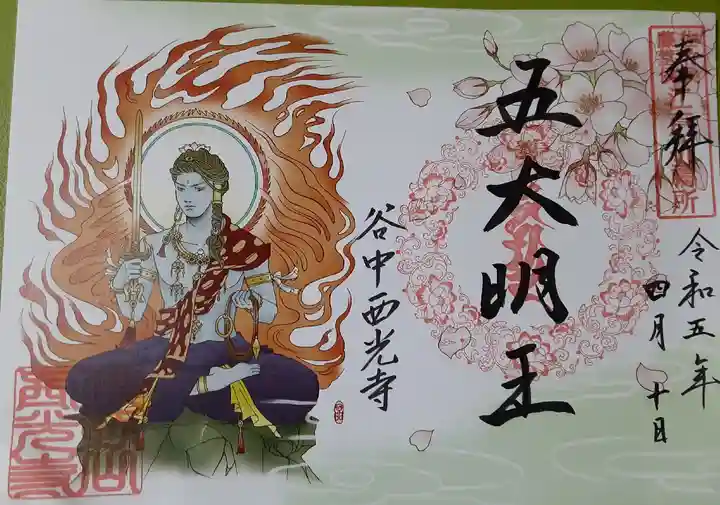 奉拝
令和五年
四月十日
五大明王
谷中西光寺
西光寺